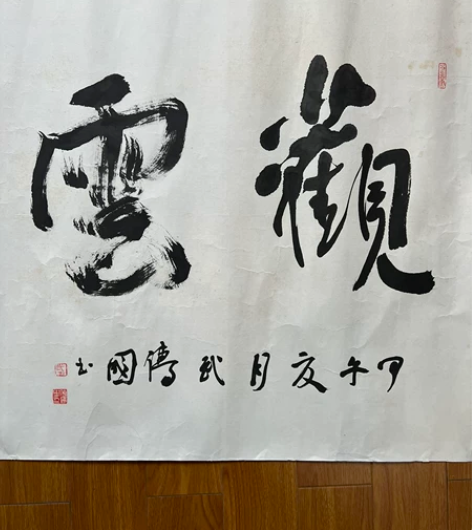 觀雲
甲午夏月武傳國书